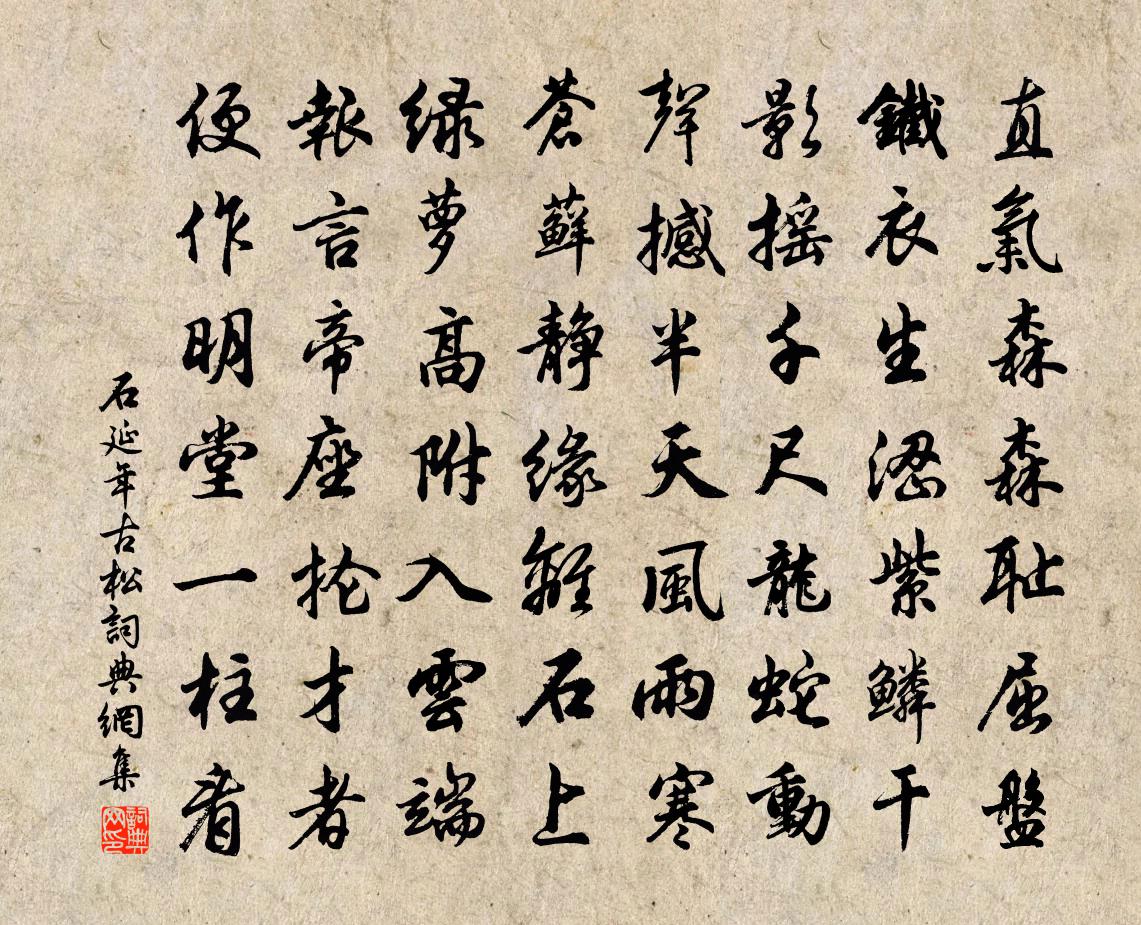 直氣森森耻屈盤
鐵衣生澀紫鱗干
影摇千尺龍蛇動
聲撼半天風雨寒
蒼蘚静緣離石上
緑萝高附入雲端
報言帝座抡才者
便作明堂一柱看
石延年古松詞典網集
詞典网印